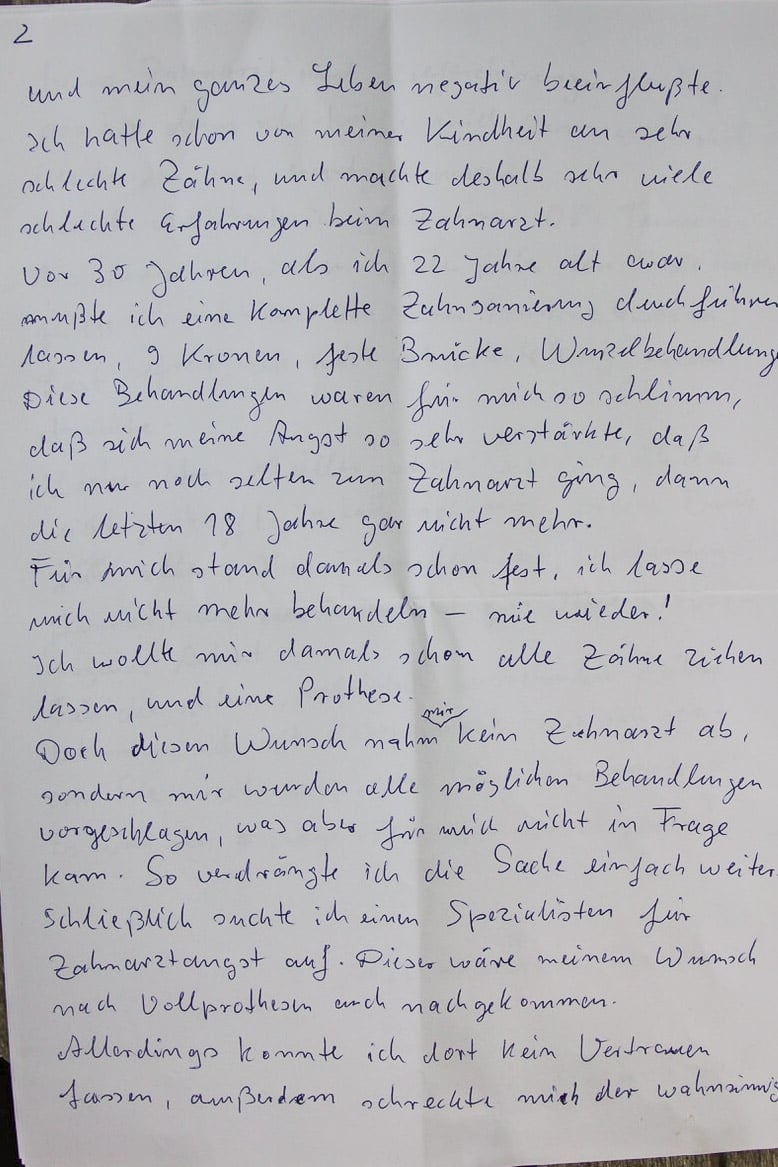 2
und mein ganzes Leben negativ beeinflußte.
Ich hatte schon von meiner Kindheit an sehr
schlechte Zähne, und machte deshalb sehr viele
schlechte Erfahrungen beim Zahnarzt.
Vor 30 Jahren, als ich 22 Jahre alt war,
mußte ich eine komplette Zahnsanierung durchführen
lassen, 9 Kronen, feste Brücke, Wurzelbehandlung
Diese Behandlungen waren für mich so schlimm,
daß sich meine Angst so sehr verstärkte, daß
ich nur noch selten zum Zahnarzt ging, dann
die letzten 18 Jahre gar nicht mehr.
Für mich stand damals schon fest, ich lasse
mich nicht mehr behandeln – nie wieder!
Ich wollte mir damals schon alle Zähne ziehen
lassen, und eine Prothese.
Doch diesen Wunsch nahm mir kein Zahnarzt ab,
sondern mir wurden alle möglichen Behandlungen
vorgeschlagen, was aber für mich nicht in Frage
kam. So verdrängte ich die Sache einfach weiter.
Schließlich suchte ich einen Spezialisten für
Zahnarztangst auf. Dieser wäre meinem Wunsch
nach Vollprothesen auch nachgekommen.
Allerdings konnte ich dort kein Vertrauen
fassen, außerdem schreckte mich der wahnsinnig